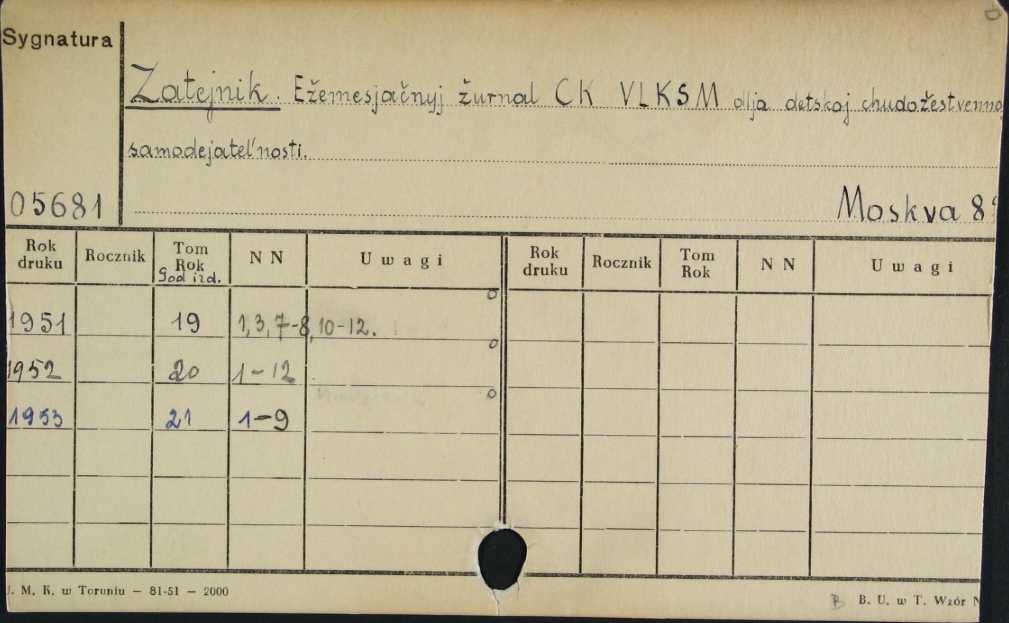 D
Sygnatura
Zatejnik. Ežemesjačnyj žurnal CK VLKSM dlja detskoj chudožestvenno
samodejatel'nosti.
05681 Moskva 8°
Rok druku Rocznik Tom Rok God izd. N N Uwagi Rok druku Rocznik Tom Rok N N Uwagi
1951 19 1, 3, 7-8, 10-12.
1952 20 1-12
1953 21 1-9
U. M. K. w Toruniu — 81-51 — 2000
B B. U. w T. Wzór N